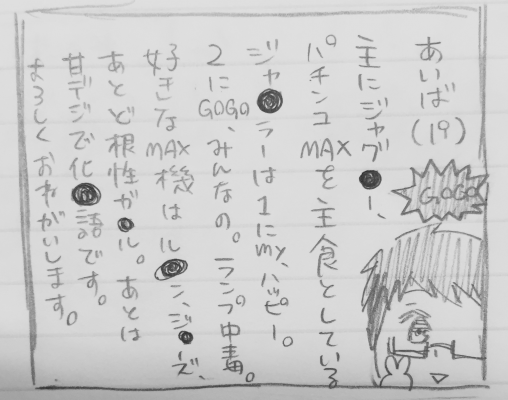 あいば(19)
主にジャグ●ー、
パチンコMAXを主食としている
ジャ●ラーは1にmy、ハッピー。
2にGOGO、みんなの。ランプ中毒。
好きなMAX機はル●ン、ジ●ーズ、
あとど根性ガ●ル。あとは
甘デジで化●語です。
よろしくおねがいします。
GOGO